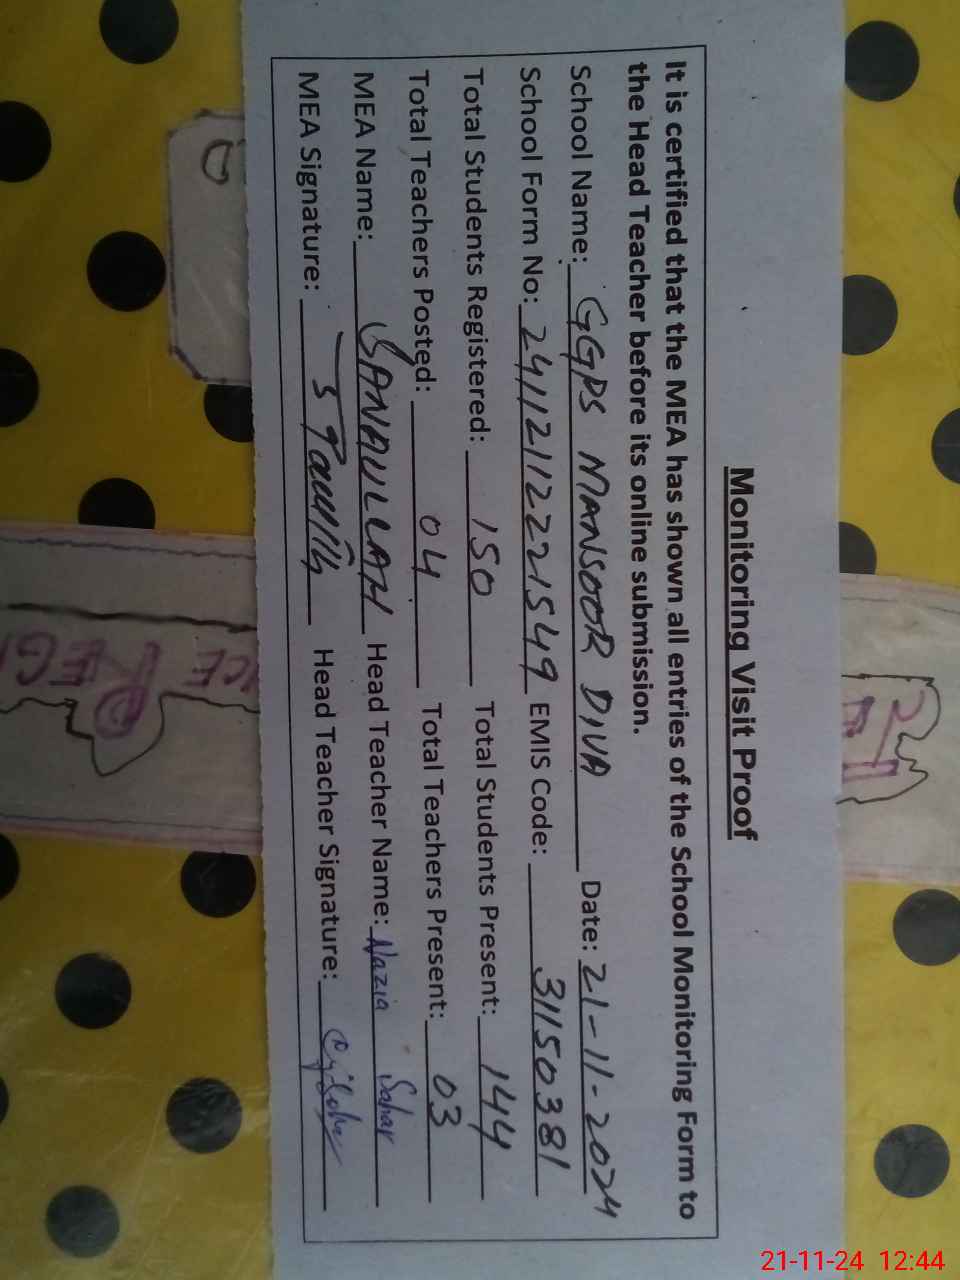 Monitoring Visit Proof
It is certified that the MEA has shown all entries of the School Monitoring Form to
the Head Teacher before its online submission.
School Name: GGPS MANSOOR DIVA Date: 21-11-2024
School Form No: 24112112221549 EMIS Code: 31150381
Total Students Registered: 150 Total Students Present: 144
Total Teachers Posted: 04 Total Teachers Present: 03
MEA Name: SANAULLAH Head Teacher Name: Nazia Sahar
MEA Signature: Head Teacher Signature:
21-11-24 12:44